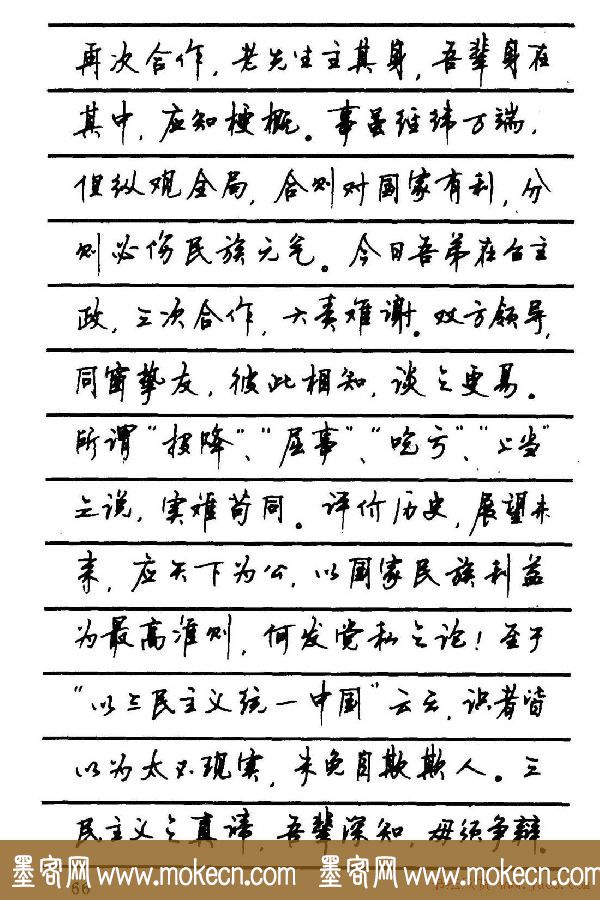 再次合作，老先生主其身，吾辈身在
其中，应知梗概。事虽经纬万端，
但纵观全局，合则对国家有利，分
则必伤民族元气。今日吾弟在台主
政，三次合作，大责难谢。双方领导，
同窗挚友，彼此相知，谈之更易。
所谓“投降”、“屈事”、“吃亏”、“上当”
之说，实难苟同。评价历史，展望未
来，应天下为公，以国家民族利益
为最高准则，何发党私之论！至于
“以三民主义统一中国”云云，识者皆
以为太不现实，未免自欺欺人。三
民主义之真谛，吾辈深知，毋须争辩。
墨客网 www.mokecn.com 墨客网 www.mokecn.com
66